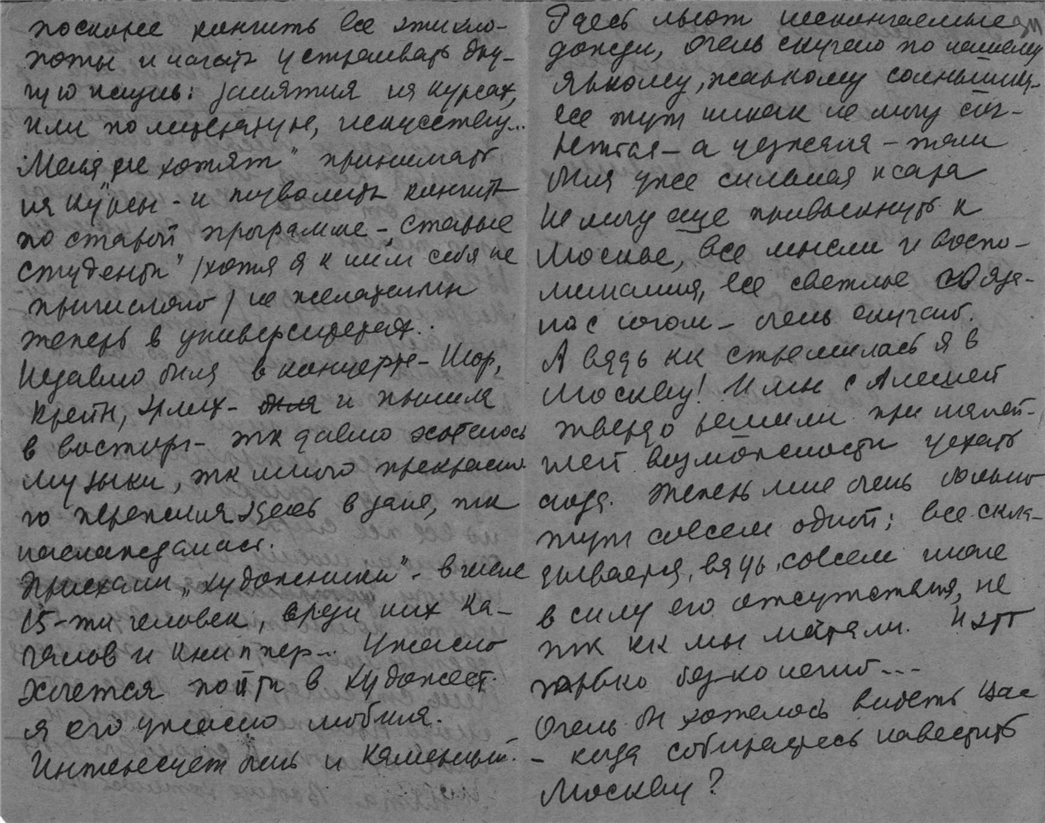 поскорее кончить все эти хло-
поты и начать устраивать дру-
гую жизнь: занятия на курсах,
или по литературе, искусству...
"Меня не хотят" принимать
на курсы - и позволить кончить
по старой программе - "старые
студенты" (хотя я к ним себя не
причисляю) не желательны
теперь в университетах..
Недавно была в концерте - Шор,
Крейн, Эрлих - и пришла
в восторг - так давно хотелось
музыки, так много прекрасно-
го пережила здесь в зале, так
наслаждалась.
Приехали "художники" - в числе
15-ти человек, среди них Ка-
чалов и Книппер... Ужасно
хочется пойти в Художест.
я его ужасно любила.
Интересует очень и Камерный.
Здесь льют нескончаемые
дожди, очень скучаю по нашему
яркому, жаркому солнышку -
все тут никак не могу сог-
реться - а уезжала - там
была уже сильная жара
Не могу еще привыкнуть к
Москве, все мысли и воспо-
минания, все светлое связа-
но с югом - очень скучаю.
А ведь как стремилась я в
Москву! И мы с Алешей
твердо решили при малей-
шей возможности уехать
сюда. Теперь мне очень больно
тут совсем одной; все скла-
дывается, ведь, совсем иначе
в силу его отсутствия, не
так как мы мечтали. И это
горько бесконечно...
Очень бы хотелось видеть Вас
- когда собираетесь навестить
Москву?